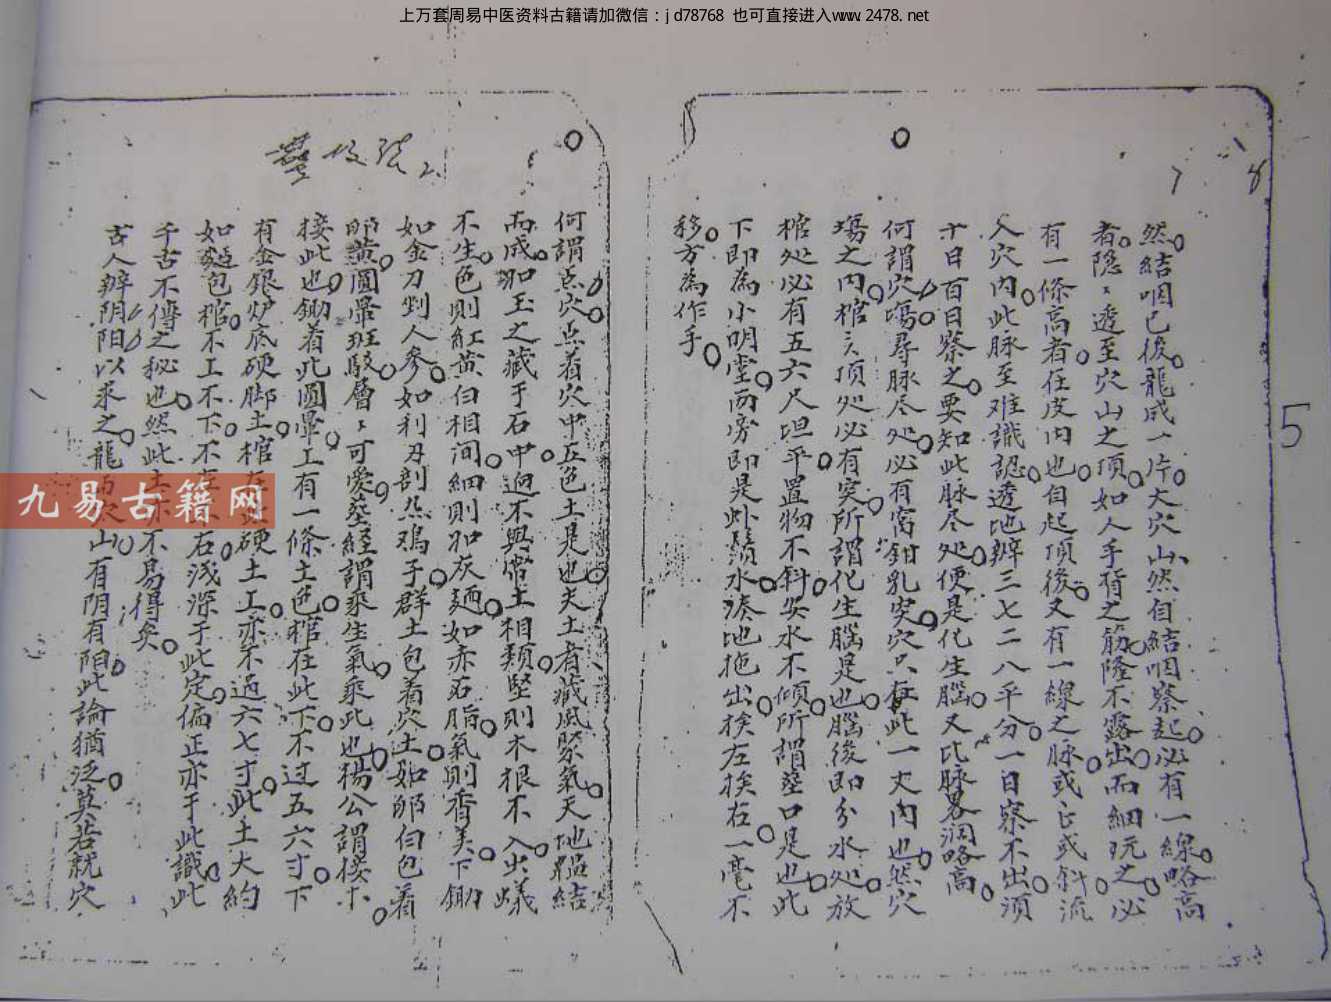 上万套周易中医资料古籍请加微信：jd78768 也可直接进入www.2478.net
然結咽已後龍成一片大穴山然自結咽察起必有一線略高
者隐〻透至穴山之頂如人手背之筋隆不露出而細玩之必
有一條高者在皮内也自起頂後又有一線之脉或正或斜流
入穴内此脉至难識認透地辨三七二八平分一日察不出須
十日百日察之要知此脉尽处便是化生腦又比脉畧润略高
何謂穴塲尋脉尽处必有窩鉗乳突穴只在此一丈内也然穴
塲之内棺之頂处必有突所謂化生腦是也腦後即分水处放
棺处必有五六尺坦平置物不斜安水不倾所謂葬口是也此
下即為小明堂两旁即是虾鬚水湊地拖出挨左挨右一毫不
移方為作手
5
何謂点穴点着穴中五色土是也夫土者藏風聚氣天地緼結
而成如玉之藏于石中迥不與常土相類堅則木根不入虫蟻
不生色則紅黄白相间細則如灰麺如赤石脂氣則香美下鋤
如金刀剉人參如利刃剖鸡子群土包着穴土如卵白包着
卵黄圓暈斑駁層〻可愛葬經謂乘生氣乘此也楊公謂接木
接此也鋤着此圓暈工有一條土色棺在此下不过五六寸下
有金銀炉底硬脚土棺在此硬土工亦不過六七寸此土大約
如麺包棺不工不下不左不右浅深于此定偏正亦于此識此
千古不傳之秘也然此土亦不易得矣
古人辨阴阳以求之龍山有阴有阳此論猶泛莫若就穴
九易古籍网